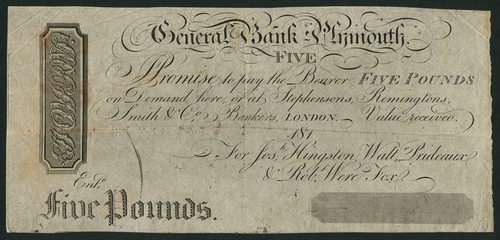 General Bank Plymouth.
FIVE
I Promise to pay the Bearer FIVE POUNDS
on Demand here, or at Stephensons, Remingtons,
Smith & Co. Bankers, LONDON. Value received.
181
For Josh. Hingston, Wall, Prideaux
& Robt. Were Fox
Entd.
Five Pounds.